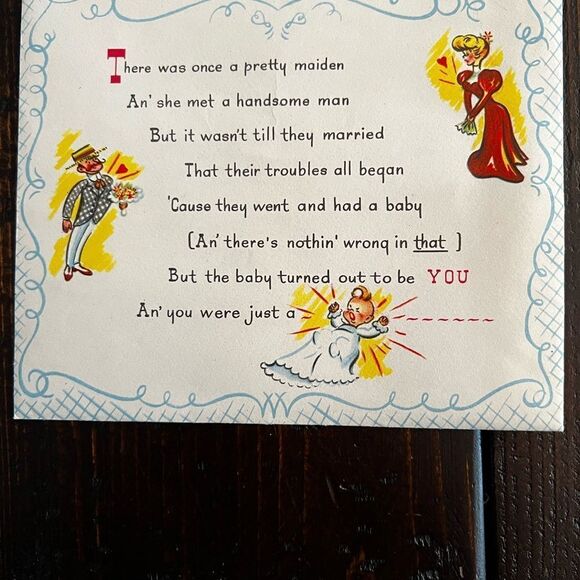 There was once a pretty maiden
An' she met a handsome man
But it wasn't till they married
That their troubles all began
'Cause they went and had a baby
(An' there's nothin' wrong in that )
But the baby turned out to be YOU
An' you were just a ~~~~~~~~